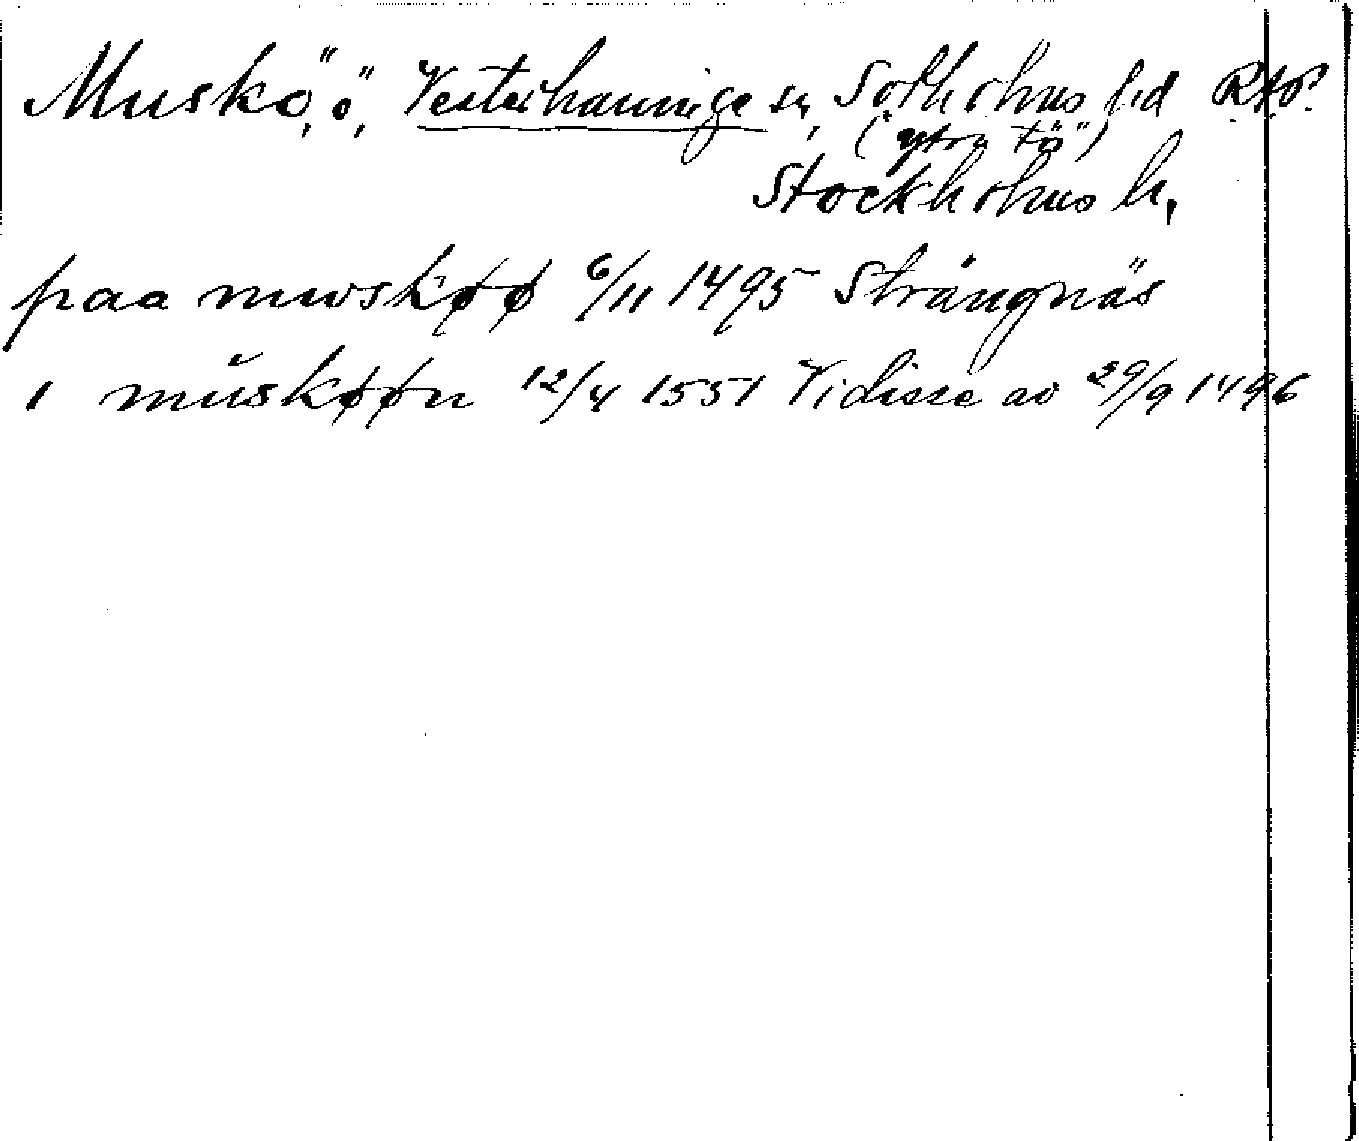 Muskö, ö, Vesterhaninge sn, Sotholms hd R.A.P.
("ytra tö")
Stockholms l.
paa mwskøø 6/11 1495 Strängnäs
i mŭskøøn 12/4 1551 Vidisse av 29/9 1496